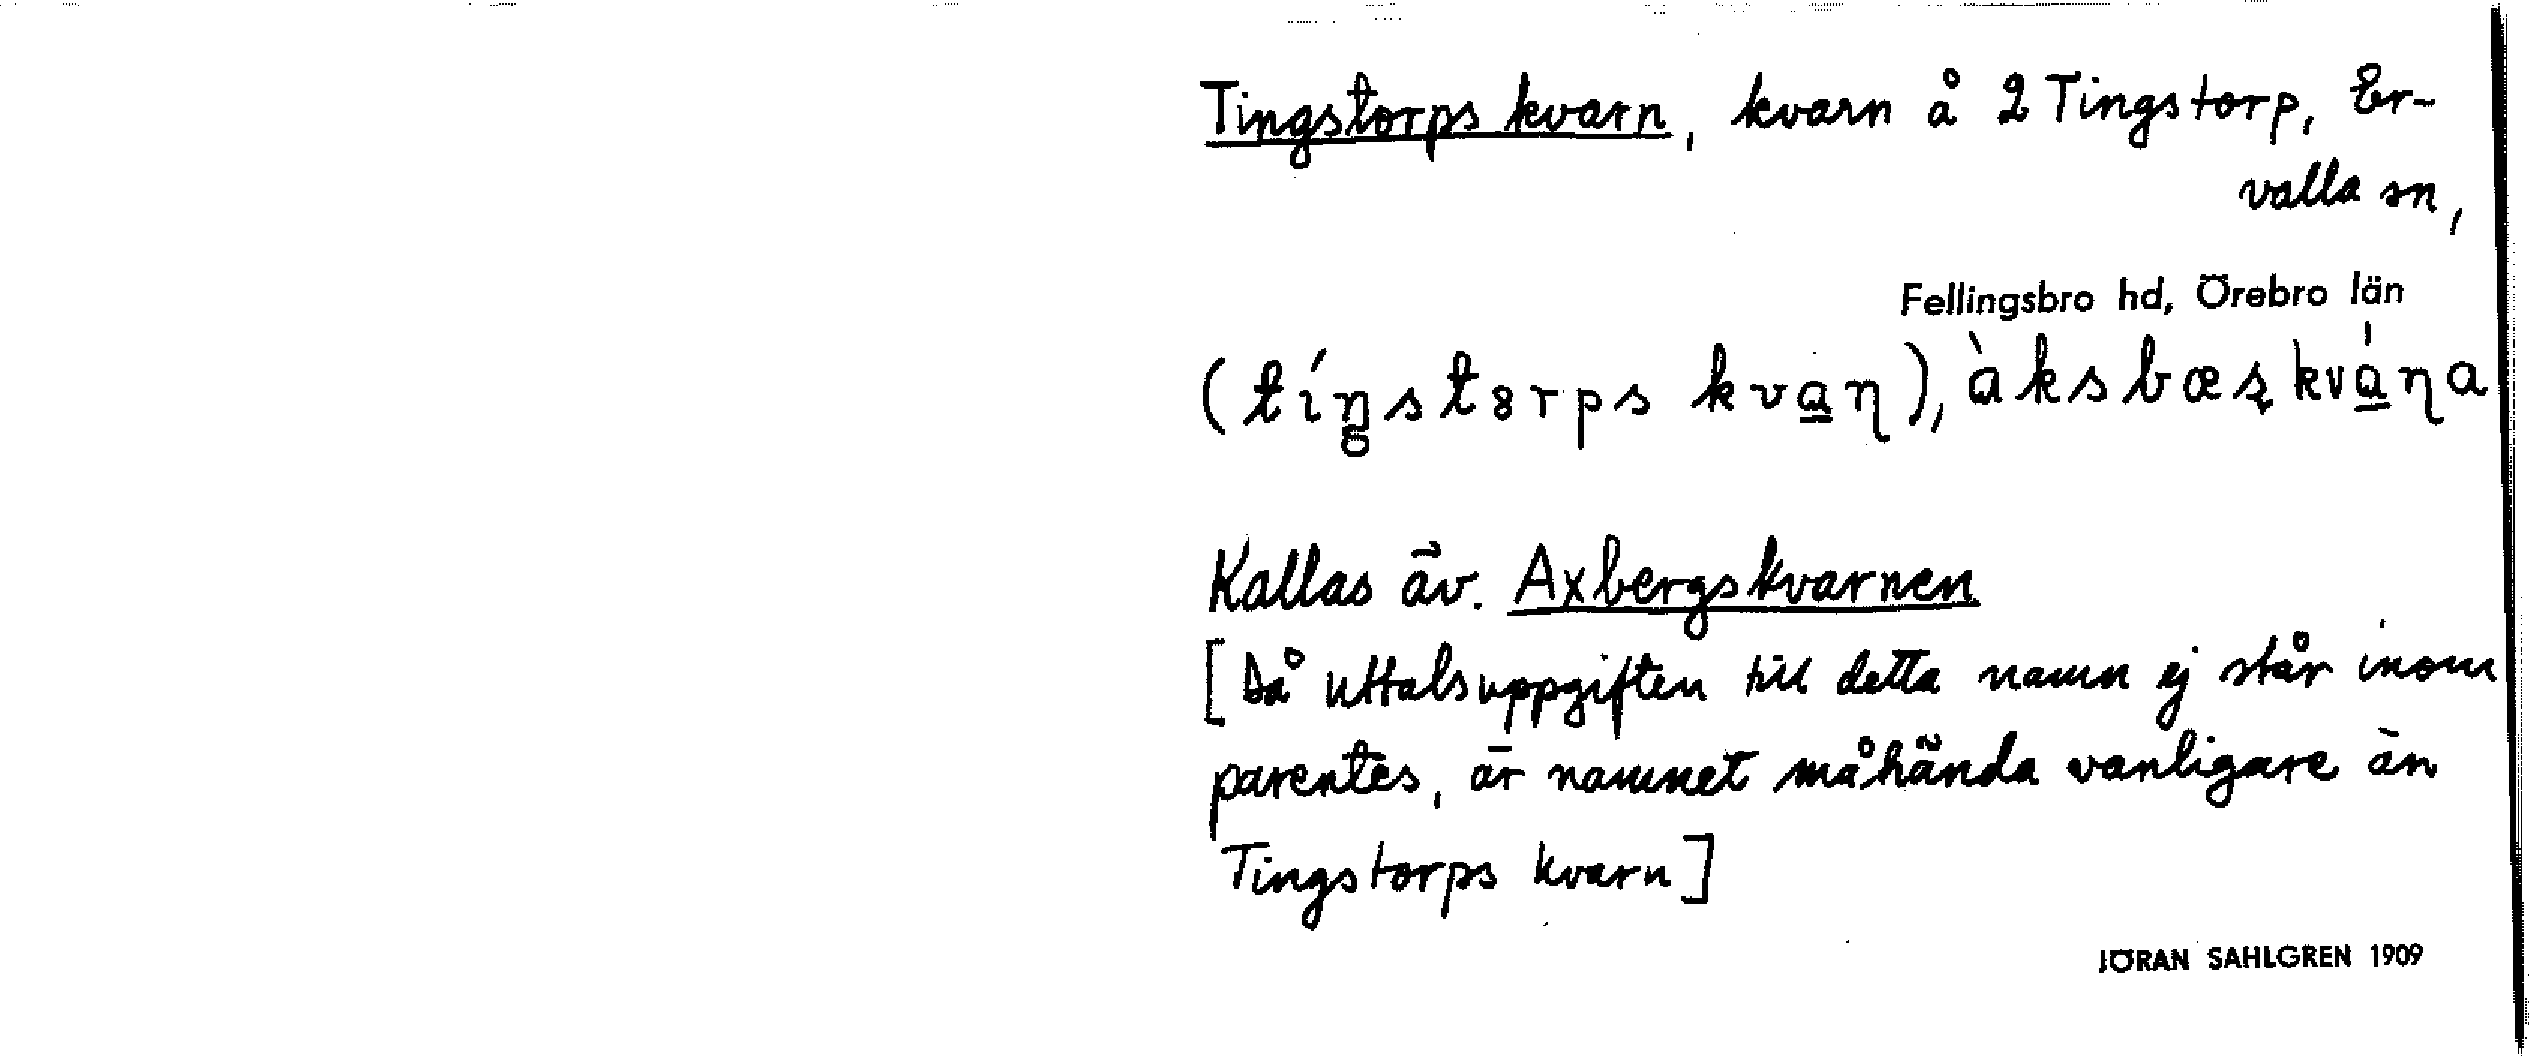 Tingstorps kvarn, kvarn å 2 Tingstorp, Er-
valla sn,
Fellingsbro hd, Örebro län
(tíŋstɵrps kva̲ɳ), àksbæʂkvá̲ɳa
Kallas äv. Axbergskvarnen
[Då uttalsuppgiften till detta namn ej står inom
parentes, är namnet måhända vanligare än
Tingstorps kvarn]
JÖRAN SAHLGREN 1909